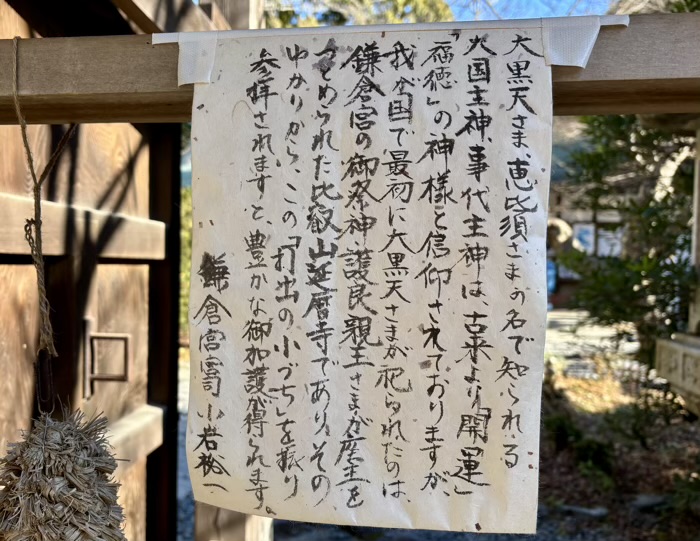 大黒天さま、恵比須さまの名で知られる
大国主神、事代主神は、古来より「開運」
「福徳」の神様と信仰されておりますが、
我が国で最初に大黒天さまが祀られたのは、
鎌倉宮の御祭神護良親王さまが座主を
つとめられた比叡山延暦寺であり、その
ゆかりから、この「打出の小づち」を振り
参拝されますと、豊かな御加護が得られます。
鎌倉宮宮司 小岩裕一